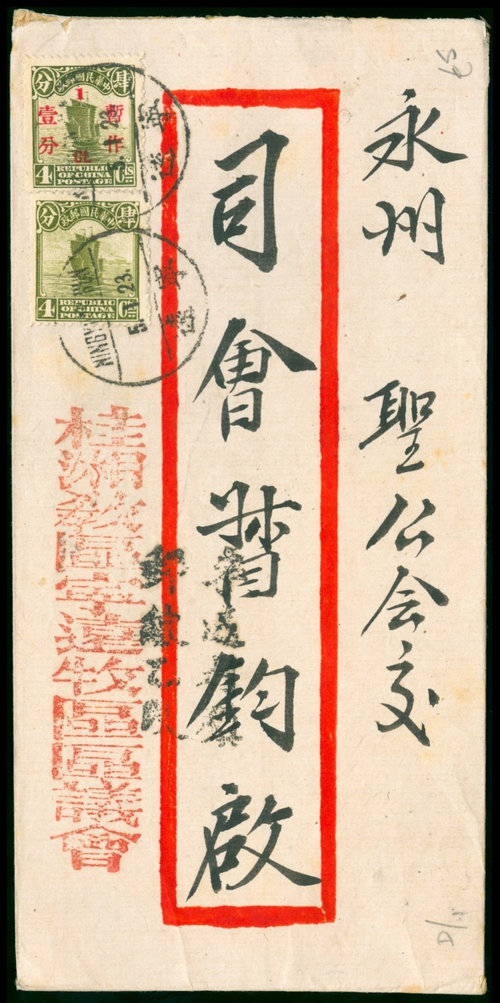 永州 聖公会交
司會督鈞啟
桂湘教區寧遠牧區區議會
中華民國郵政
肆分
暫作
壹分
1
4 REPUBLIC OF CHINA POSTAGE Cts
中華民國郵政
肆分
4 REPUBLIC OF CHINA POSTAGE Cts
寧遠
23